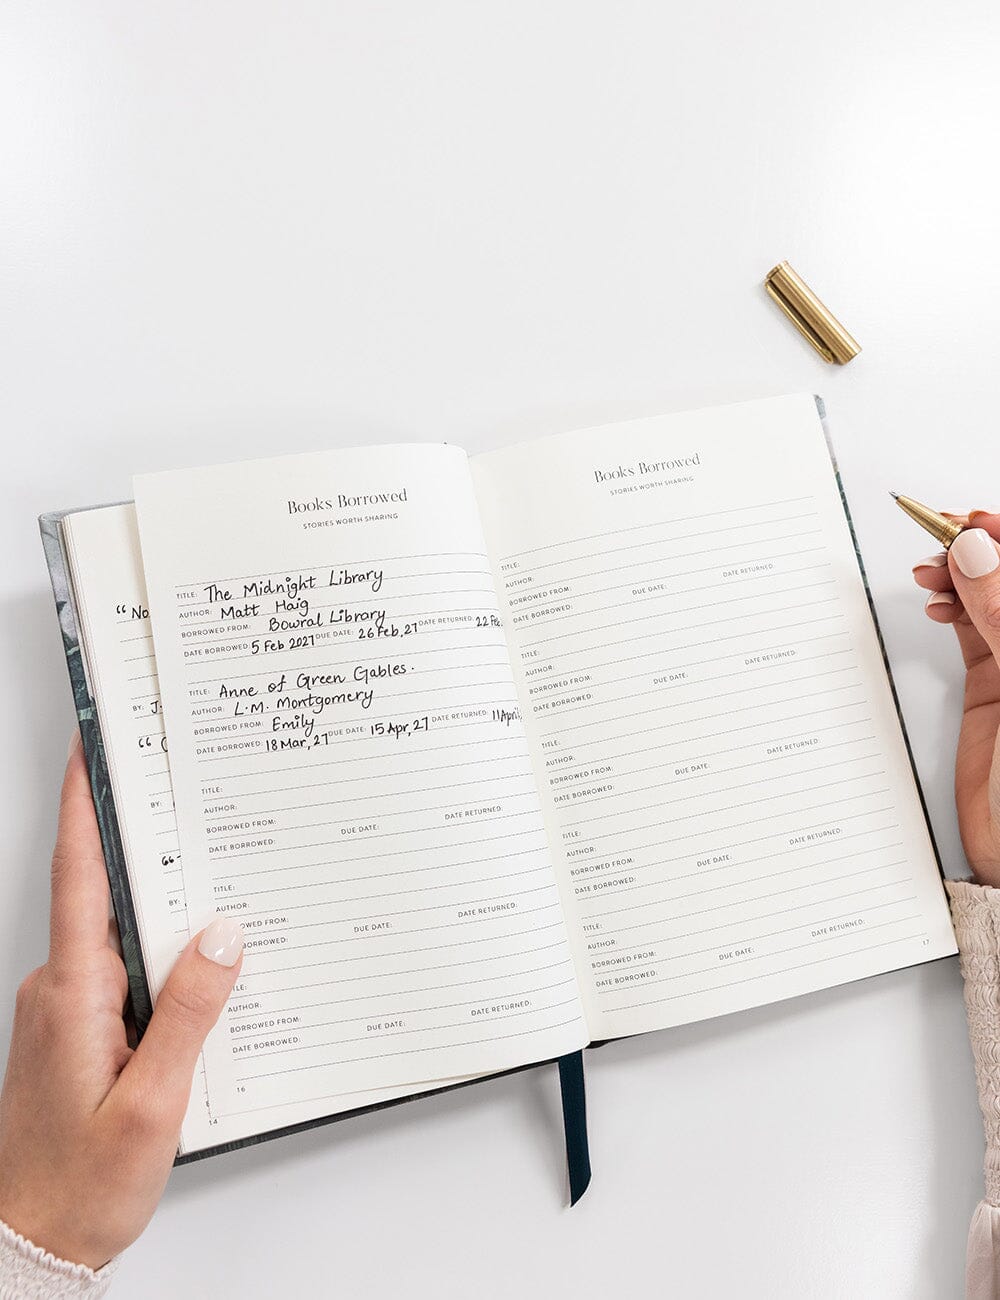 “ No
BY: J.
“
BY:
“
BY:
14
Books Borrowed
STORIES WORTH SHARING
TITLE: The Midnight Library
AUTHOR: Matt Haig
BORROWED FROM: Bowral Library
DATE BORROWED: 5 Feb 2027 DUE DATE: 26 Feb, 27 DATE RETURNED: 22 Feb.
TITLE: Anne of Green Gables.
AUTHOR: L.M. Montgomery
BORROWED FROM: Emily
DATE BORROWED: 18 Mar, 27 DUE DATE: 15 Apr, 27 DATE RETURNED: 11 April,
TITLE:
AUTHOR:
BORROWED FROM:
DATE BORROWED: DUE DATE: DATE RETURNED:
TITLE:
AUTHOR:
OWED FROM:
BORROWED: DUE DATE: DATE RETURNED:
LE:
AUTHOR:
BORROWED FROM:
DATE BORROWED: DUE DATE: DATE RETURNED:
16
Books Borrowed
STORIES WORTH SHARING
TITLE:
AUTHOR:
BORROWED FROM:
DATE BORROWED: DUE DATE: DATE RETURNED:
TITLE:
AUTHOR:
BORROWED FROM:
DATE BORROWED: DUE DATE: DATE RETURNED:
TITLE:
AUTHOR:
BORROWED FROM:
DATE BORROWED: DUE DATE: DATE RETURNED:
TITLE:
AUTHOR:
BORROWED FROM:
DATE BORROWED: DUE DATE: DATE RETURNED:
TITLE:
AUTHOR:
BORROWED FROM:
DATE BORROWED: DUE DATE: DATE RETURNED:
17